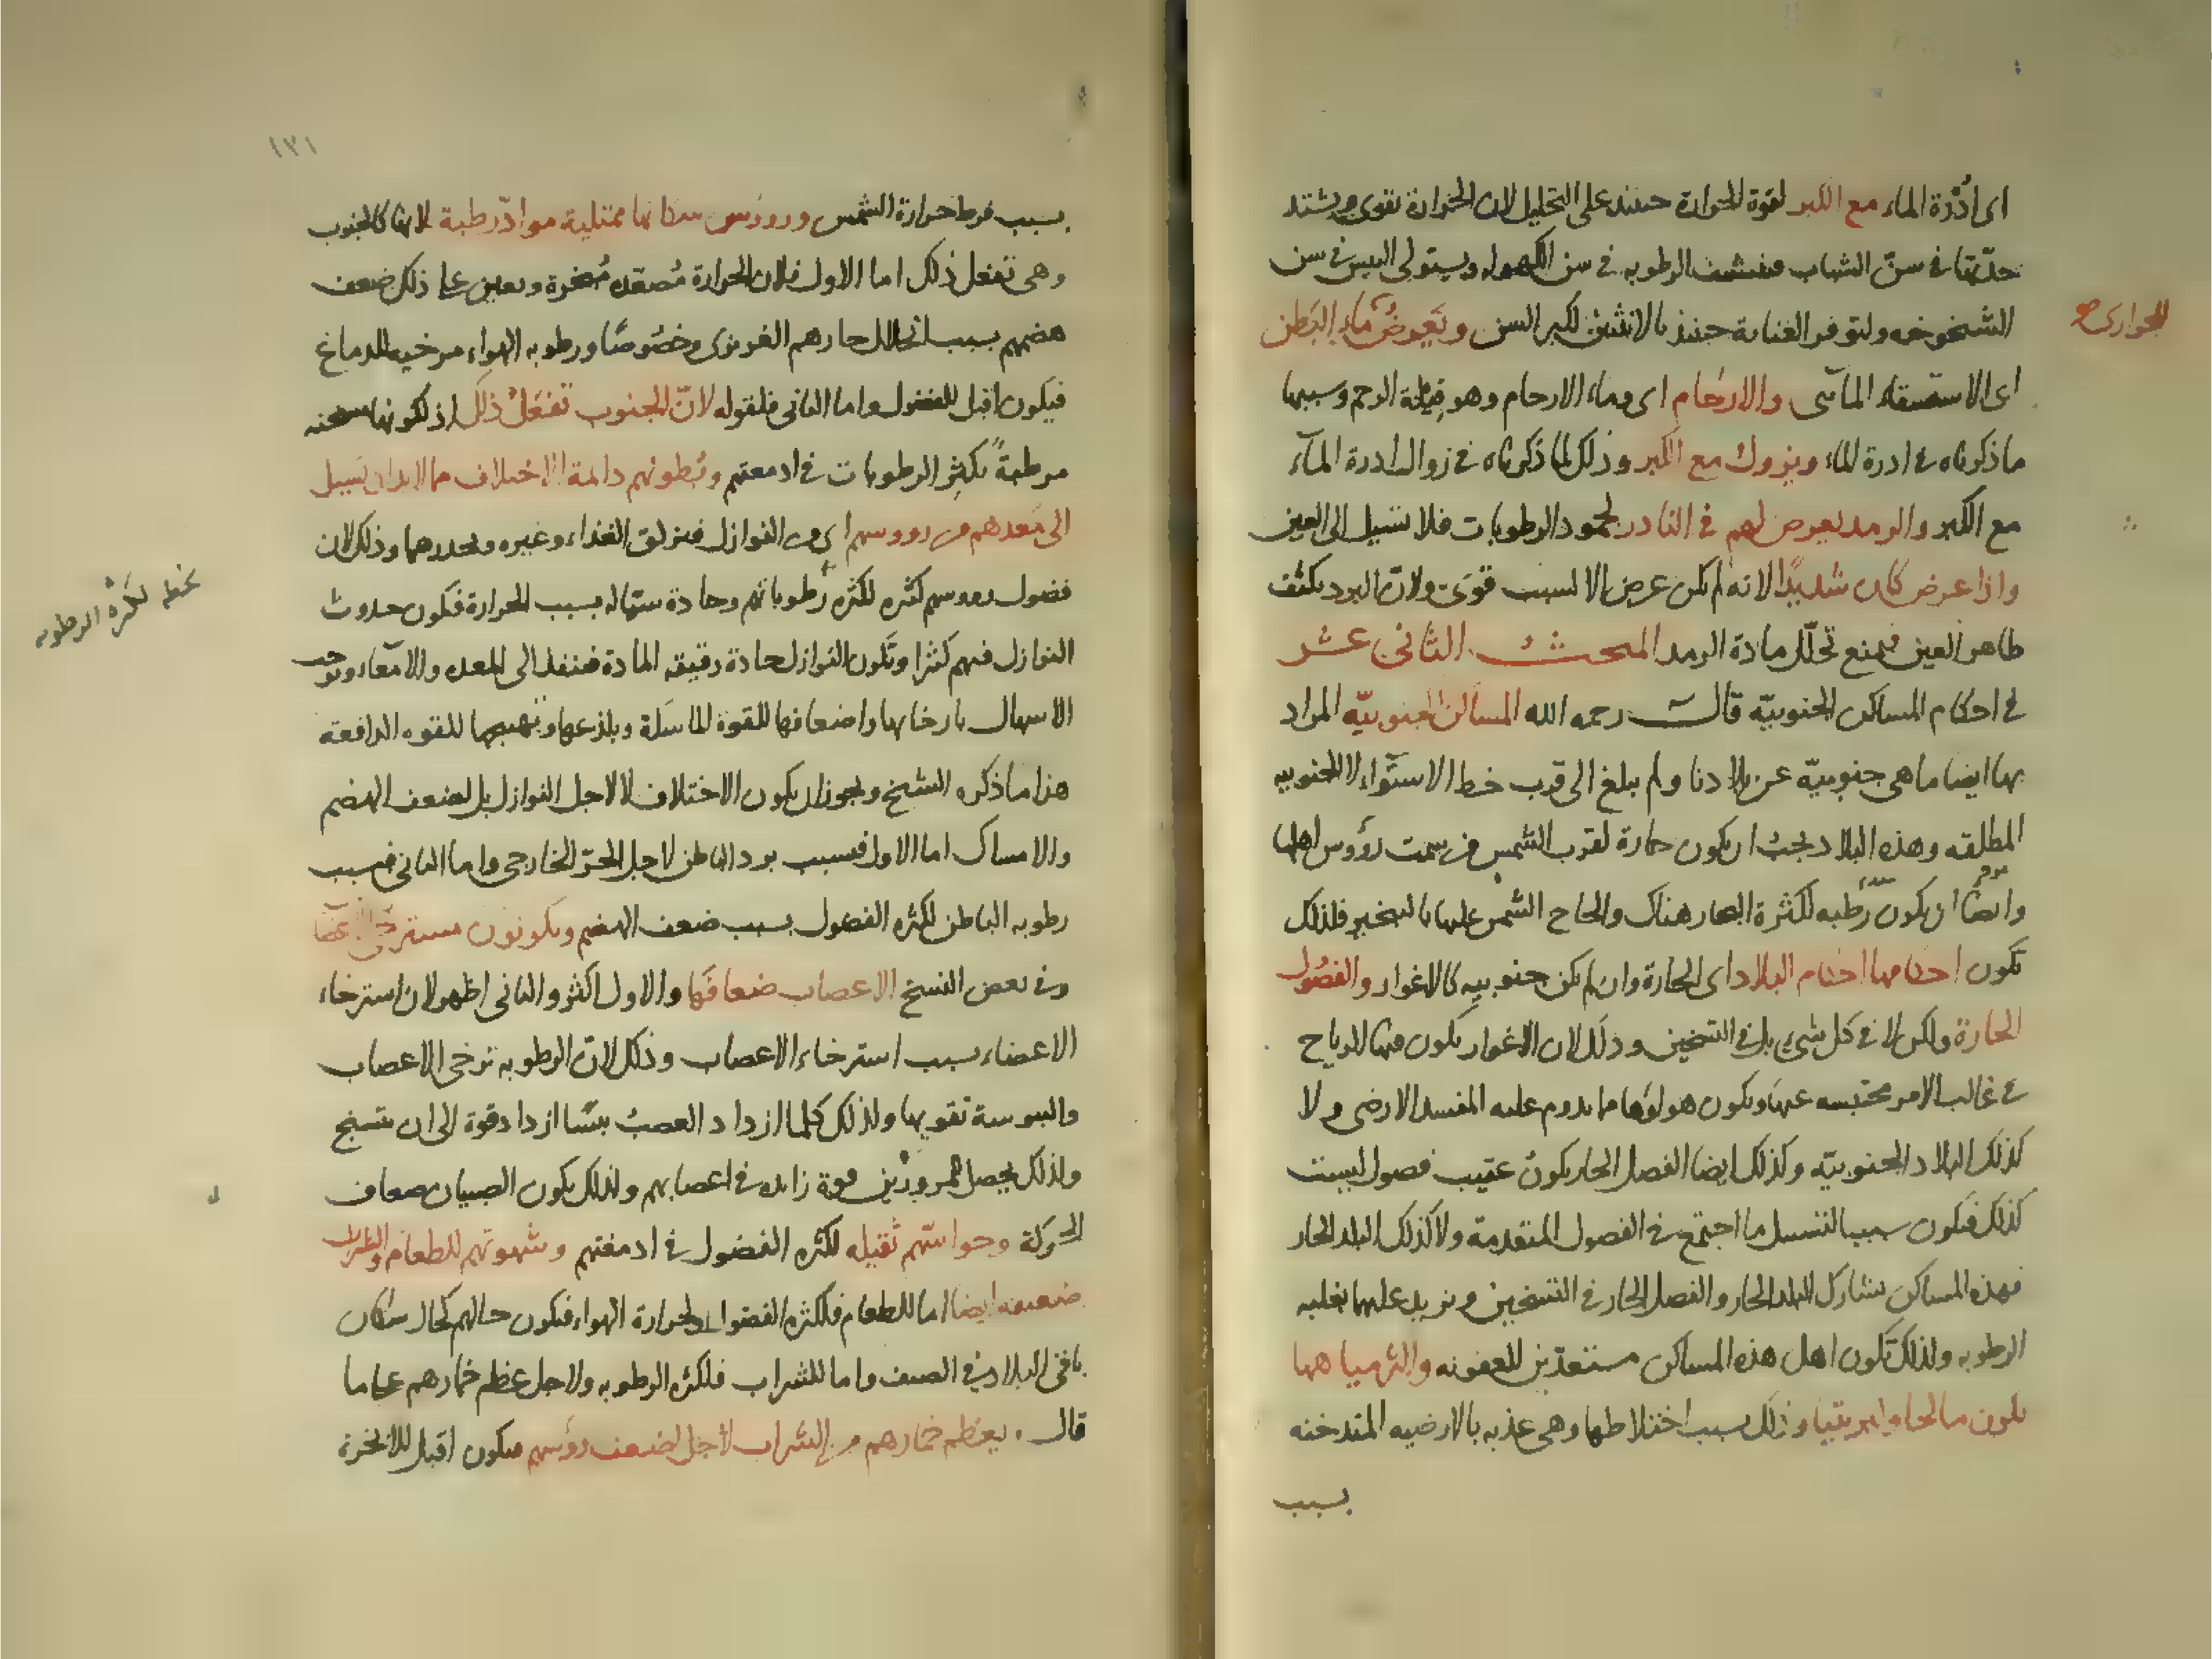 اى اُدْرة الماء مع الكبر لقوة الحرارة حينئذ على التحليل لان الحرارة تقوى ويشتد
حدّتها فى سنّ الشباب فينشف الرطوبه فى سن الكهولة ويستولى اليبس فى سن
الشيخوخه ولتوفر العناية حينئذ بالانثيين لكبر السن ويَعرِضُ ماء البَطن
للجوارى صح
اى الاستسقاء المائى والارحام اى وماء الارحام وهو قيلة الرحم وسببها
ما ذكرناه فى ادرة الماء ويزول مع الكبر وذلك لما ذكرناه فى زوال ادرة الماء
مع الكبر والرمد يعرض لهم فى النادر لجمود الرطوبات فلا تسيل الى العين
واذا عرض كان شديدًا لانه لم يكن عرض الا لسبب قوىّ ولانّ البرد يكثف
ظاهر العين فيمنع تحلّل مادة الرمد المبحث الثانى عشر
فى احكام المساكن الجنوبيّه قال رحمه الله المساكن الجنوبيّه المراد
بها ايضا ما هى جنوبيّة عن بلادنا ولم يبلغ الى قرب خط الاستواء لا الجنوبيه
المطلقه وهذه البلاد يجب ان يكون حارة لقرب الشمس من سمت رؤوس اهلها
وايضًا ان يكون رطبه لكثرة البحار هناك والحاح الشمس عليها بالتبخير فلذلك
يكون احكامها احكام البلاد اى الحارة وان لم يكن جنوبيه كالاغوار والفصُول
الحارة ولكن لا فى كل شىء بل فى التسخين وذلك لان الاغوار يكون فيها الرياح
فى غالب الامر محتبسه عنها ويكون هواؤها مما يدوم عليه المفسد الارضى ولا
كذلك البلاد الجنوبيّه وكذلك ايضا الفصل الحار يكون عقيب فصول ليست
كذلك فيكون سببا لتسيل ما اجتمع فى الفصول المتقدمة ولا كذلك البلد الحار
فهذه المساكن تشارك البلد الحار والفصل الحار فى التسخين ويزيد عليهما بغلبه
الرطوبه ولذلك يكون اهل هذه المساكن مستعدّين للعفونه واكثر مياهها
يكون مالحا وكبريتيا وذلك بسبب اختلاطها وهى عذبه بالارضيه المتدخنه
بسبب
١٣١
بسبب فرط حرارة الشمس ورووس سكانها ممتلية موادّ رطبة لانها كالجنوب
وهى تفعل ذلك اما الاول فلان الحرارة مُصعّده مُبخرة ويعين على ذلك ضعف
هضمهم بسبب انحلال حارهم الغريزى وخصُوصًا ورطوبه الهواء مرخيه للدماغ
فيكون اقبل للفضول واما الثانى فلقوله لانّ الجنوب تفعَلُ ذلك اذ لكونها مسخنه
مرطبةً يكثر الرطوبات فى ادمغتهم وبُطونهم دائمة الاختلاف مما لابد ان يَسيل
الى مَعدهم من رووسهم اى من النوازل فيزلق الغذاء وغيره ويحدرهما وذلك لان
فضول رووسهم كثيره لكثره رطوباتهم وحادة سيّاله بسبب الحرارة فيكون حدوث
بخطه لكثره الرطوبه
النوازل فيهم كثيرا وتكون النوازل حادة رقيقه المادة فينفذ الى المعده والامعاء وتوجب
الاسهال بارخائها واضعافها للقوة الماسكة وبلذعها وتهييجها للقوه الدافعه
هذا ما ذكره الشيخ ويجوز ان يكون الاختلاف لا لاجل النوازل بل لضعف الهضم
والامساك اما الاول فبسبب برد الباطن لاجل الحرّ الخارجى واما الثانى فبسبب
رطوبه الباطن لكثره الفضول بسبب ضعف الهضم ويكونون مسترخى الاعضاء
وفى بعض النسخ الاعصاب ضعافها والاول اكثر والثانى اظهر لان استرخاء
الاعضاء بسبب استرخاء الاعصاب وذلك لانّ الرطوبه ترخى الاعصاب
واليبوسة تقويها ولذلك كلما ازداد العصبُ يبسًا ازداد قوة الى ان يتشنج
ولذلك يحصل للمبرودين قوة زايده فى اعصابهم ولذلك يكون الصبيان ضعاف
الحركة وحواسّهم ثقيله لكثره الفضول فى ادمغتهم وشهوتهم للطعام والشراب
ضعيفه ايضا اما للطعام فلكثره الفضول ولحرارة الهواء فيكون حالهم كحال سكان
باقى البلاد فى الصيف واما للشراب فلكثره الرطوبه ولاجل عظم خمارهم على ما
قال ويعظم خمارهم من الشراب لاجل لضعف رؤسهم فيكون اقبل للابخرة